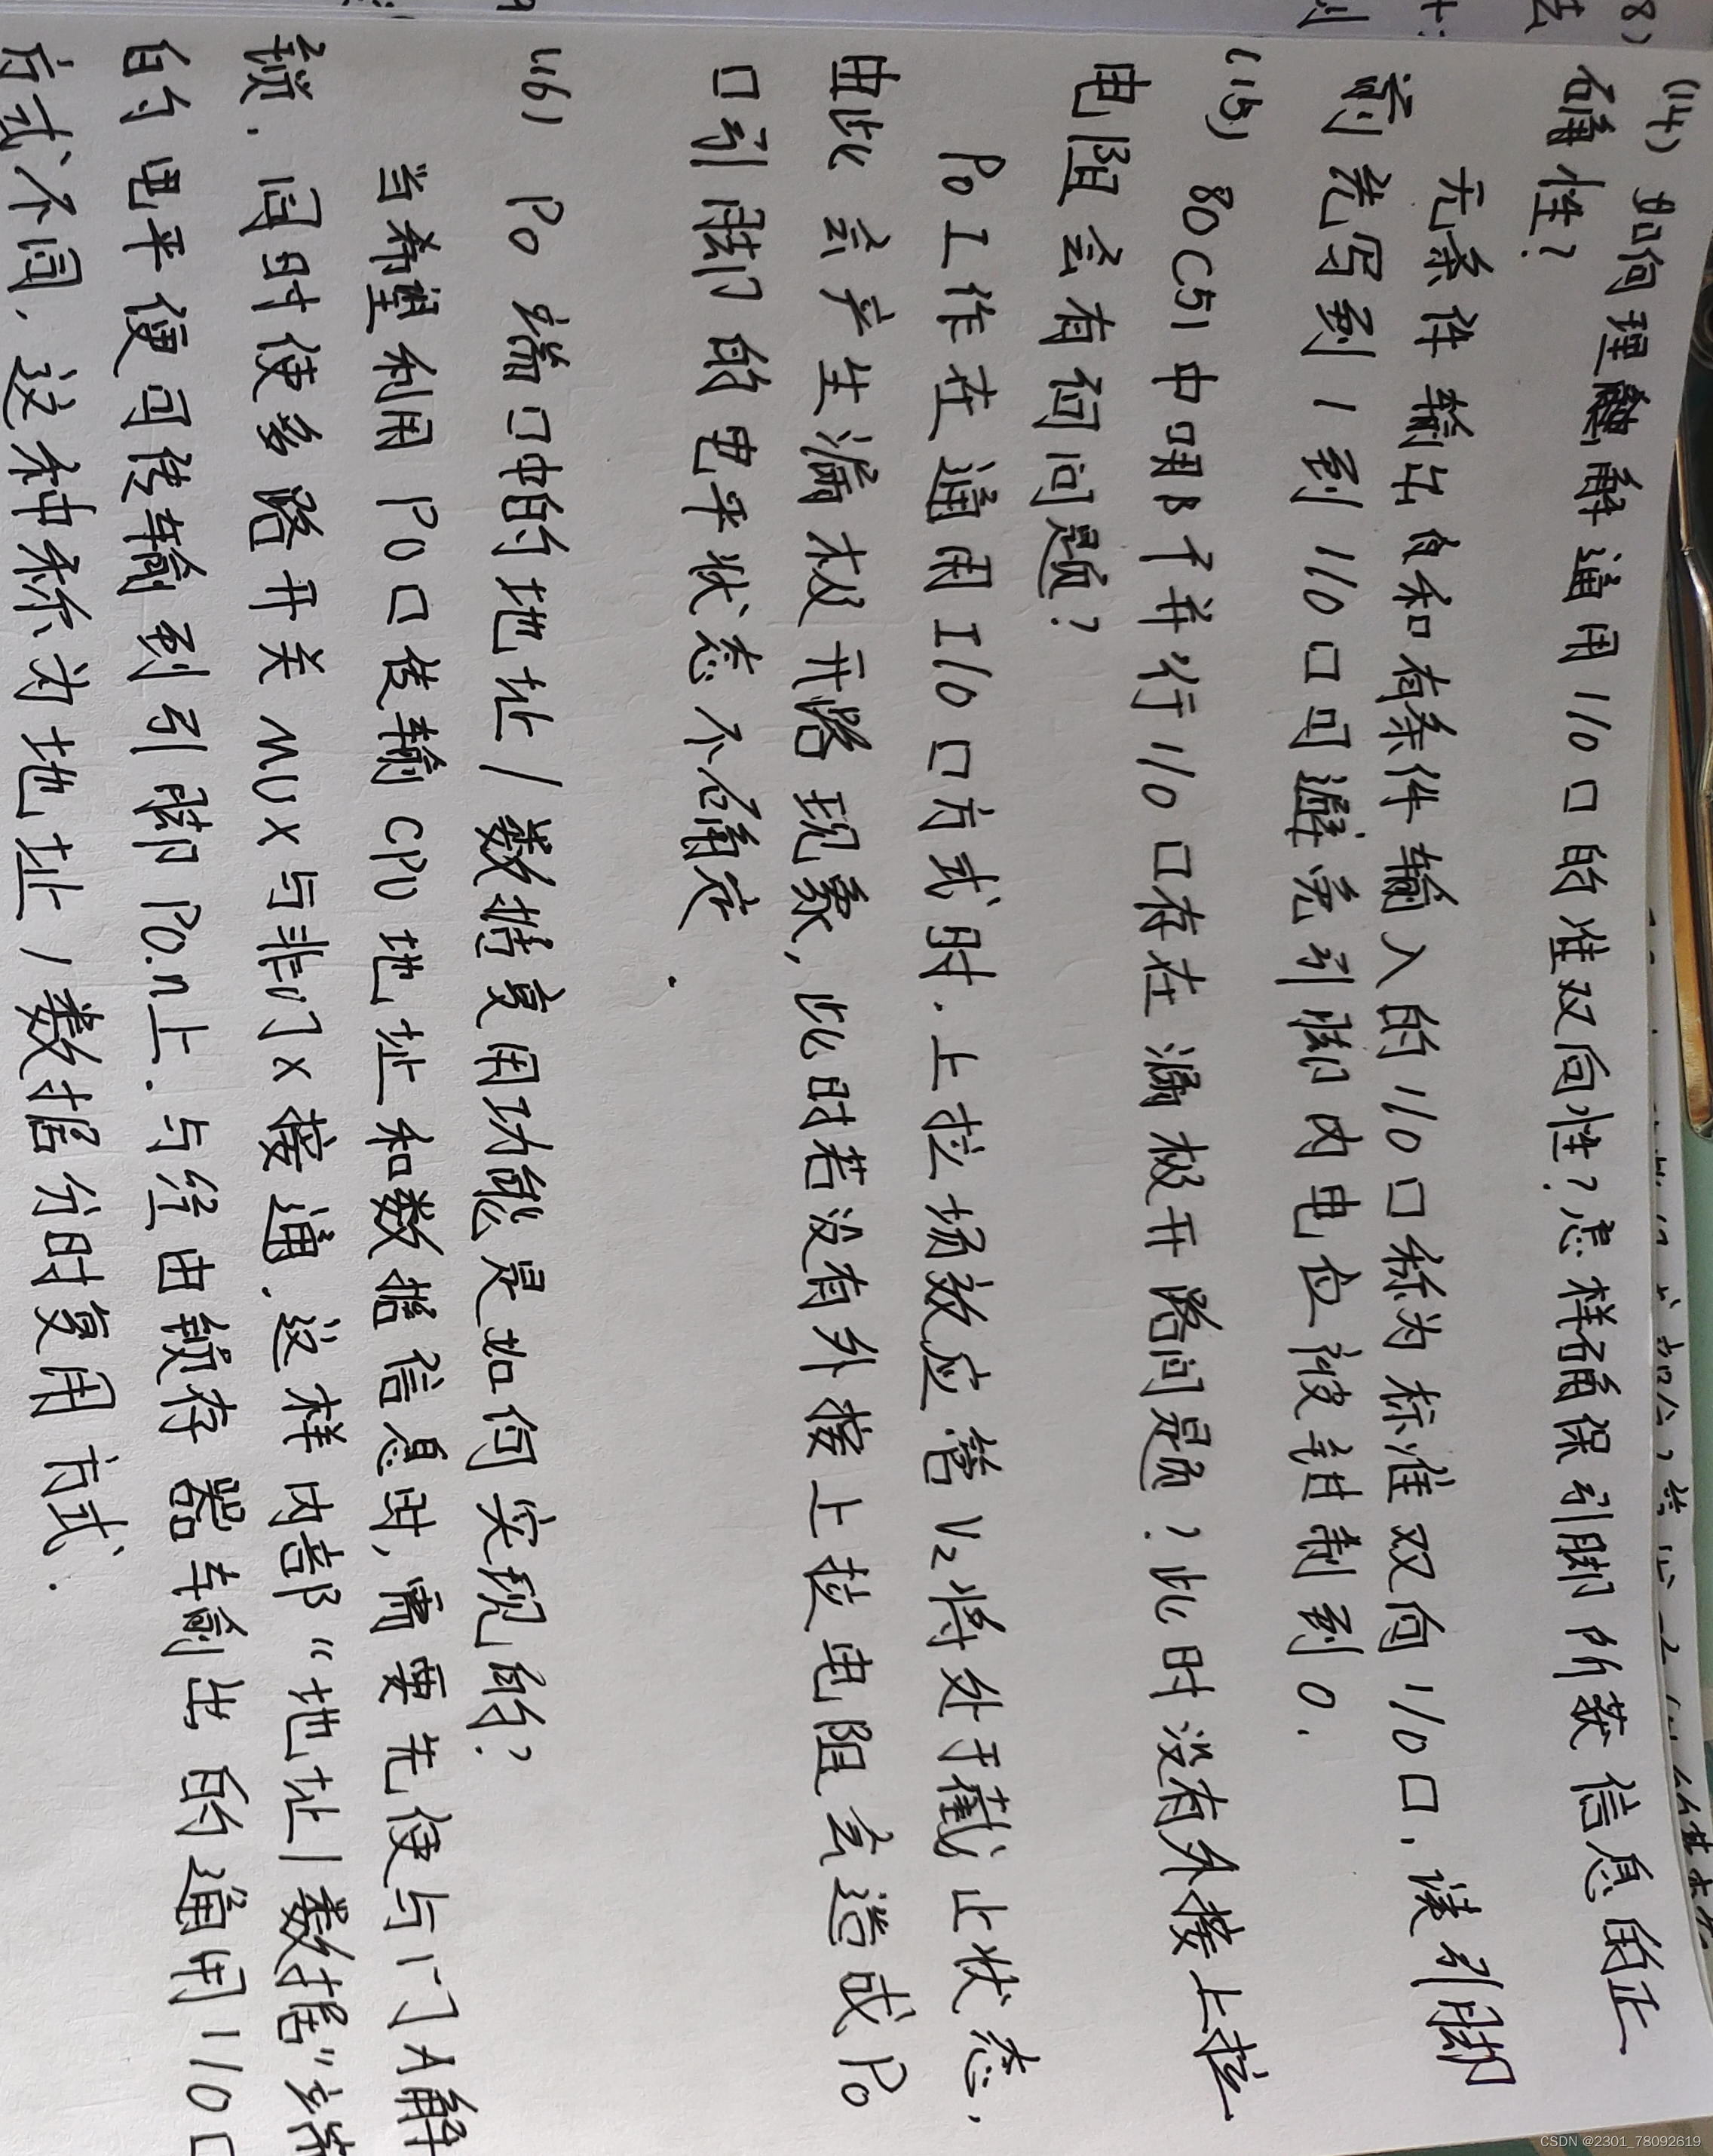 (14) 如何理解通用I/O口的准双向性？怎样确保引脚所获信息的正
确性？
无条件输出和有条件输入的I/O口称为标准双向I/O口，读引脚
前先写到1到I/O口可避免引脚内电位被钳制到0.
(15) 80C51中哪个并行I/O口存在漏极开路问题？此时没有外接上拉
电阻会有何问题？
P0工作在通用I/O口方式时.上拉场效应管V2将处于截止状态，
由此会产生漏极开路现象，此时若没有外接上拉电阻会造成P0
口引脚的电平状态不确定.
(16) P0端口中的地址/数据复用功能是如何实现的？
当希望利用P0口传输CPU地址和数据信息时，需要先使与门A解
锁.同时使多路开关MUX与非门X接通.这样内部“地址/数据”端
的电平便可传输到引脚P0.n上.与经由锁存器车输出的通用I/O口
方式不同，这种称为地址/数据分时复用方式.
CSDN @2301_78092619